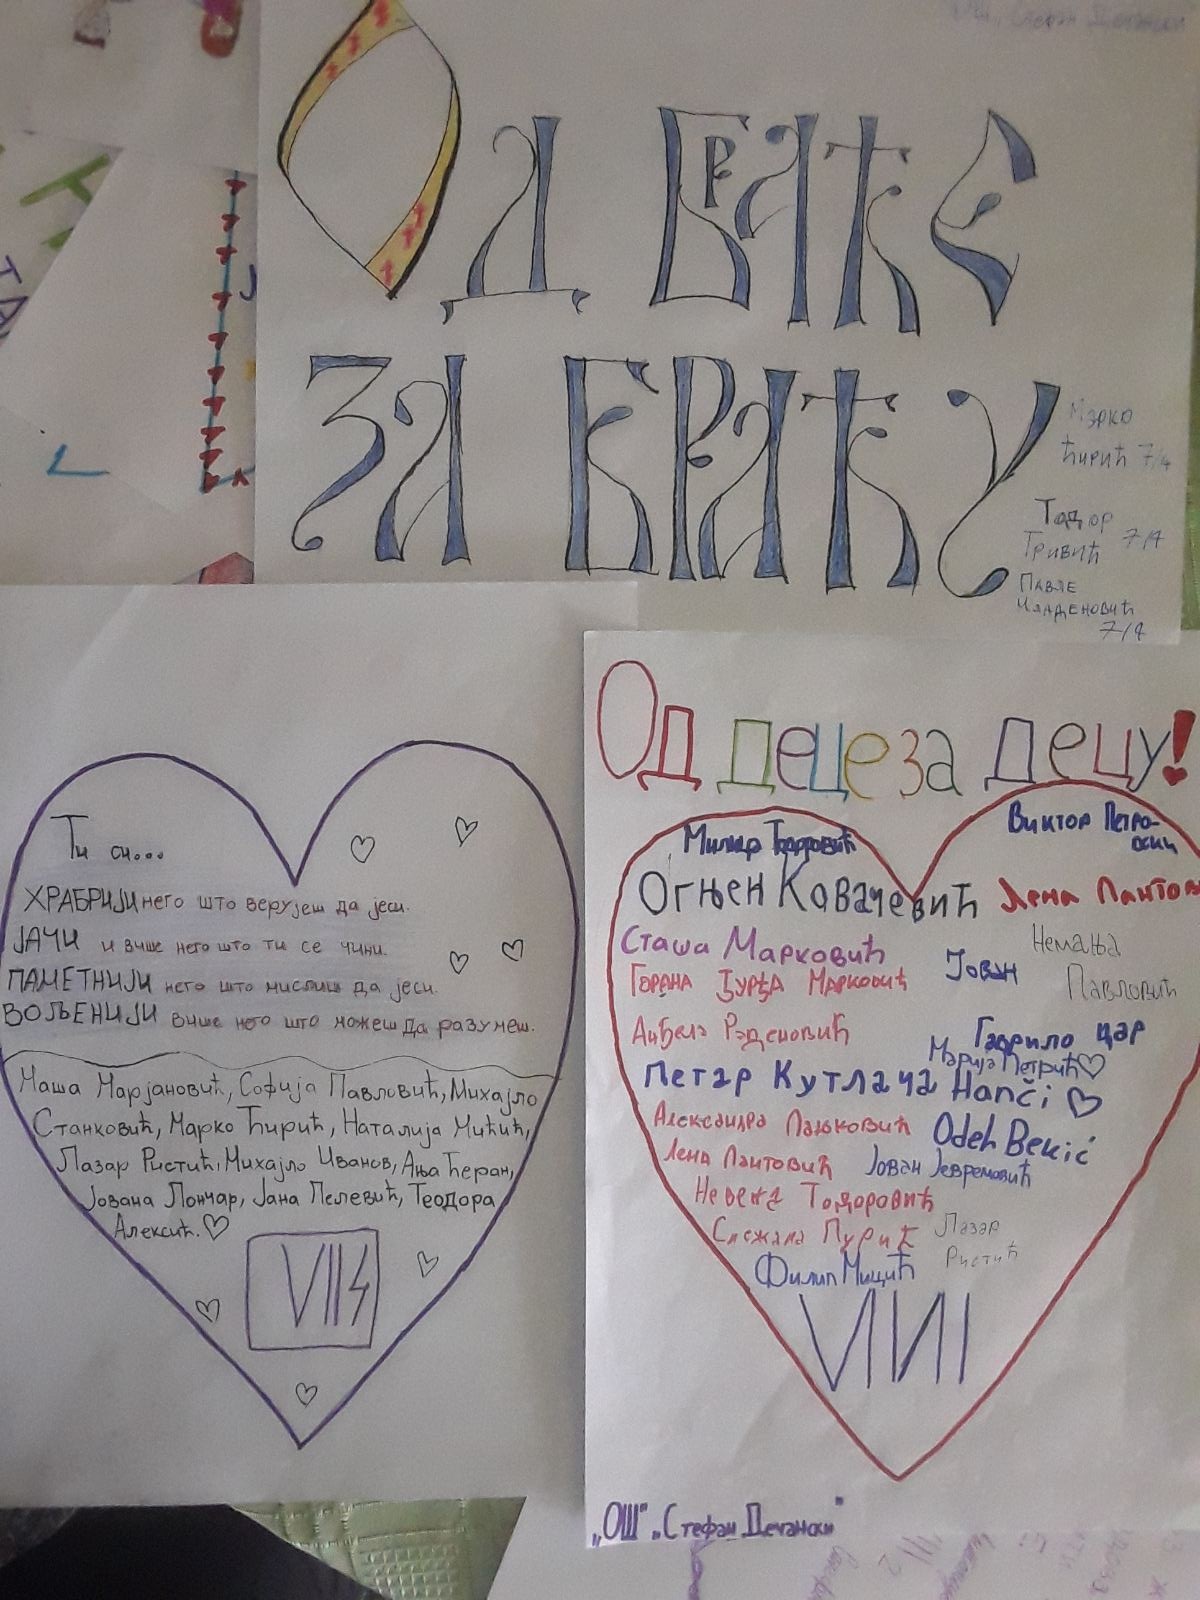 ОШ "Стефан Дечански
Од браће
за браћу
Марко
Ћирић 7/4
Тодор
Гривић 7/4
Павле
Младеновић
7/4
Ти си...
ХРАБРИЈИ него што верујеш да јеси.
ЈАЧИ и више него што ти се чини.
ПАМЕТНИЈИ него што мислиш да јеси.
ВОЉЕНИЈИ више него што можеш да разумеш.
Маша Марјановић, Софија Павловић, Михајло
Станковић, Марко Ћирић, Наталија Мићић,
Лазар Ристић, Михајло Иванов, Ања Ћеран,
Јована Лончар, Јана Пелевић, Теодора
Алексић.♡
Од деце за децу!
Виктор Петро-
Тодоровић
Огњен Ковачевић Лена Пантов
Сташа Марковић
Немања
Јован
Павловић
Марковић
Анђела Раденовић
Гаврило цар
Марија Петрић♡
Петар Кутлача Hanči ♡
Александра
Odeh Bekić
Лена Пантовић Јован Јевремовић
Невена Тодоровић
Снежана
Лазар
Ристић
Филип Мицић
"ОШ" "Стефан Дечански"